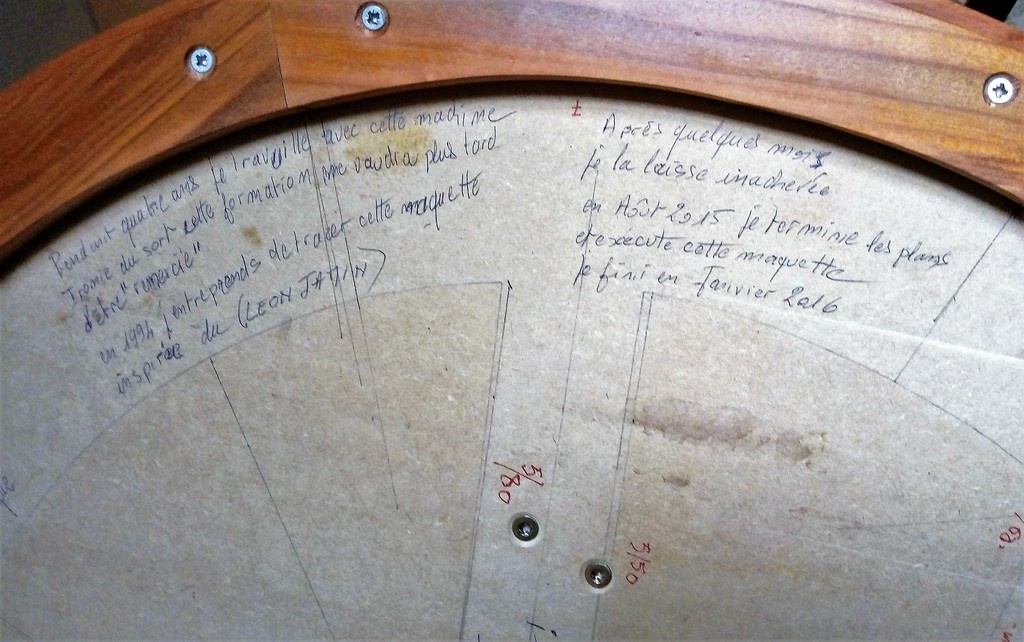 Pendant quatre ans je travaille avec cette machine
Ironie du sort cette formation me vaudra plus tard
d'être "remercié"
en 1994 j'entreprends de tracer cette maquette
inspirée du (LEON JATIN)
7
Après quelques mois
je la laisse inachevée
en Août 2015 je termine les plans
et execute cette maquette
je fini en Janvier 2016
5/80
5/50